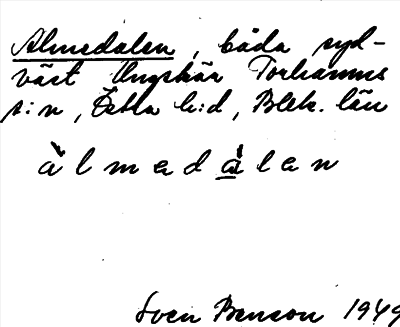 Almedalen, båda syd-
väst Ungskär Torhamns
s:n, Östra h:d, Blek. län
àlmedalen
Sven Benson 1949